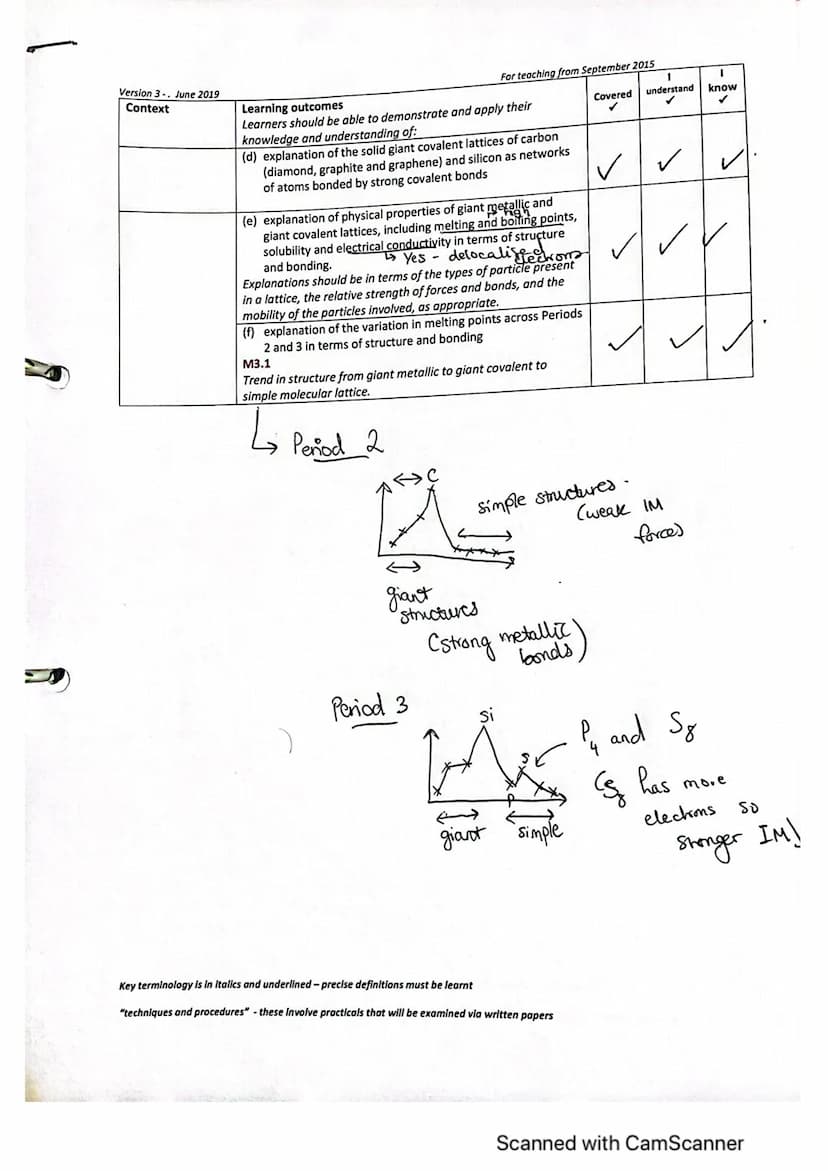 For teaching from September 2015
Version 3 -. June 2019
Context
Learning outcomes
Learners should be able to demonstrate and apply their
knowledge and understanding of:
Covered
✓
I
understand
✓
I
know
✓
(d) explanation of the solid giant covalent lattices of carbon
(diamond, graphite and graphene) and silicon as networks
of atoms bonded by strong covalent bonds
✓ ✓ ✓
(e) explanation of physical properties of giant metallic and
↳ high
giant covalent lattices, including melting and boiling points,
solubility and electrical conductivity in terms of structure
↳ Yes - delocalised
electrons
and bonding.
Explanations should be in terms of the types of particle present
in a lattice, the relative strength of forces and bonds, and the
mobility of the particles involved, as appropriate.
✓ ✓ ✓
(f) explanation of the variation in melting points across Periods
2 and 3 in terms of structure and bonding
M3.1
Trend in structure from giant metallic to giant covalent to
simple molecular lattice.
✓ ✓ ✓
↳ Period 2
C
simple structures.
(weak IM
forces)
giant
structures
(strong metallic
bonds)
Period 3
Si
S
P
P4 and S8
S8 has more
electrons so
stronger IM!
giant
simple
Key terminology is in italics and underlined – precise definitions must be learnt
"techniques and procedures" - these involve practicals that will be examined via written papers
Scanned with CamScanner